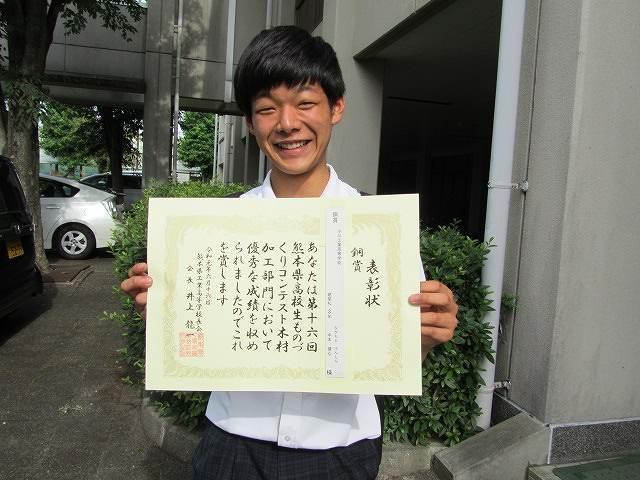 表彰状
銅賞
銅賞
あなたは第十六回
熊本県高校生ものづ
くりコンテスト木材
加工部門において
優秀な成績を収め
られましたのでこれ
を賞します
令和元年六月十六日
熊本県工業高等学校長会
会長 井上 龍一
様